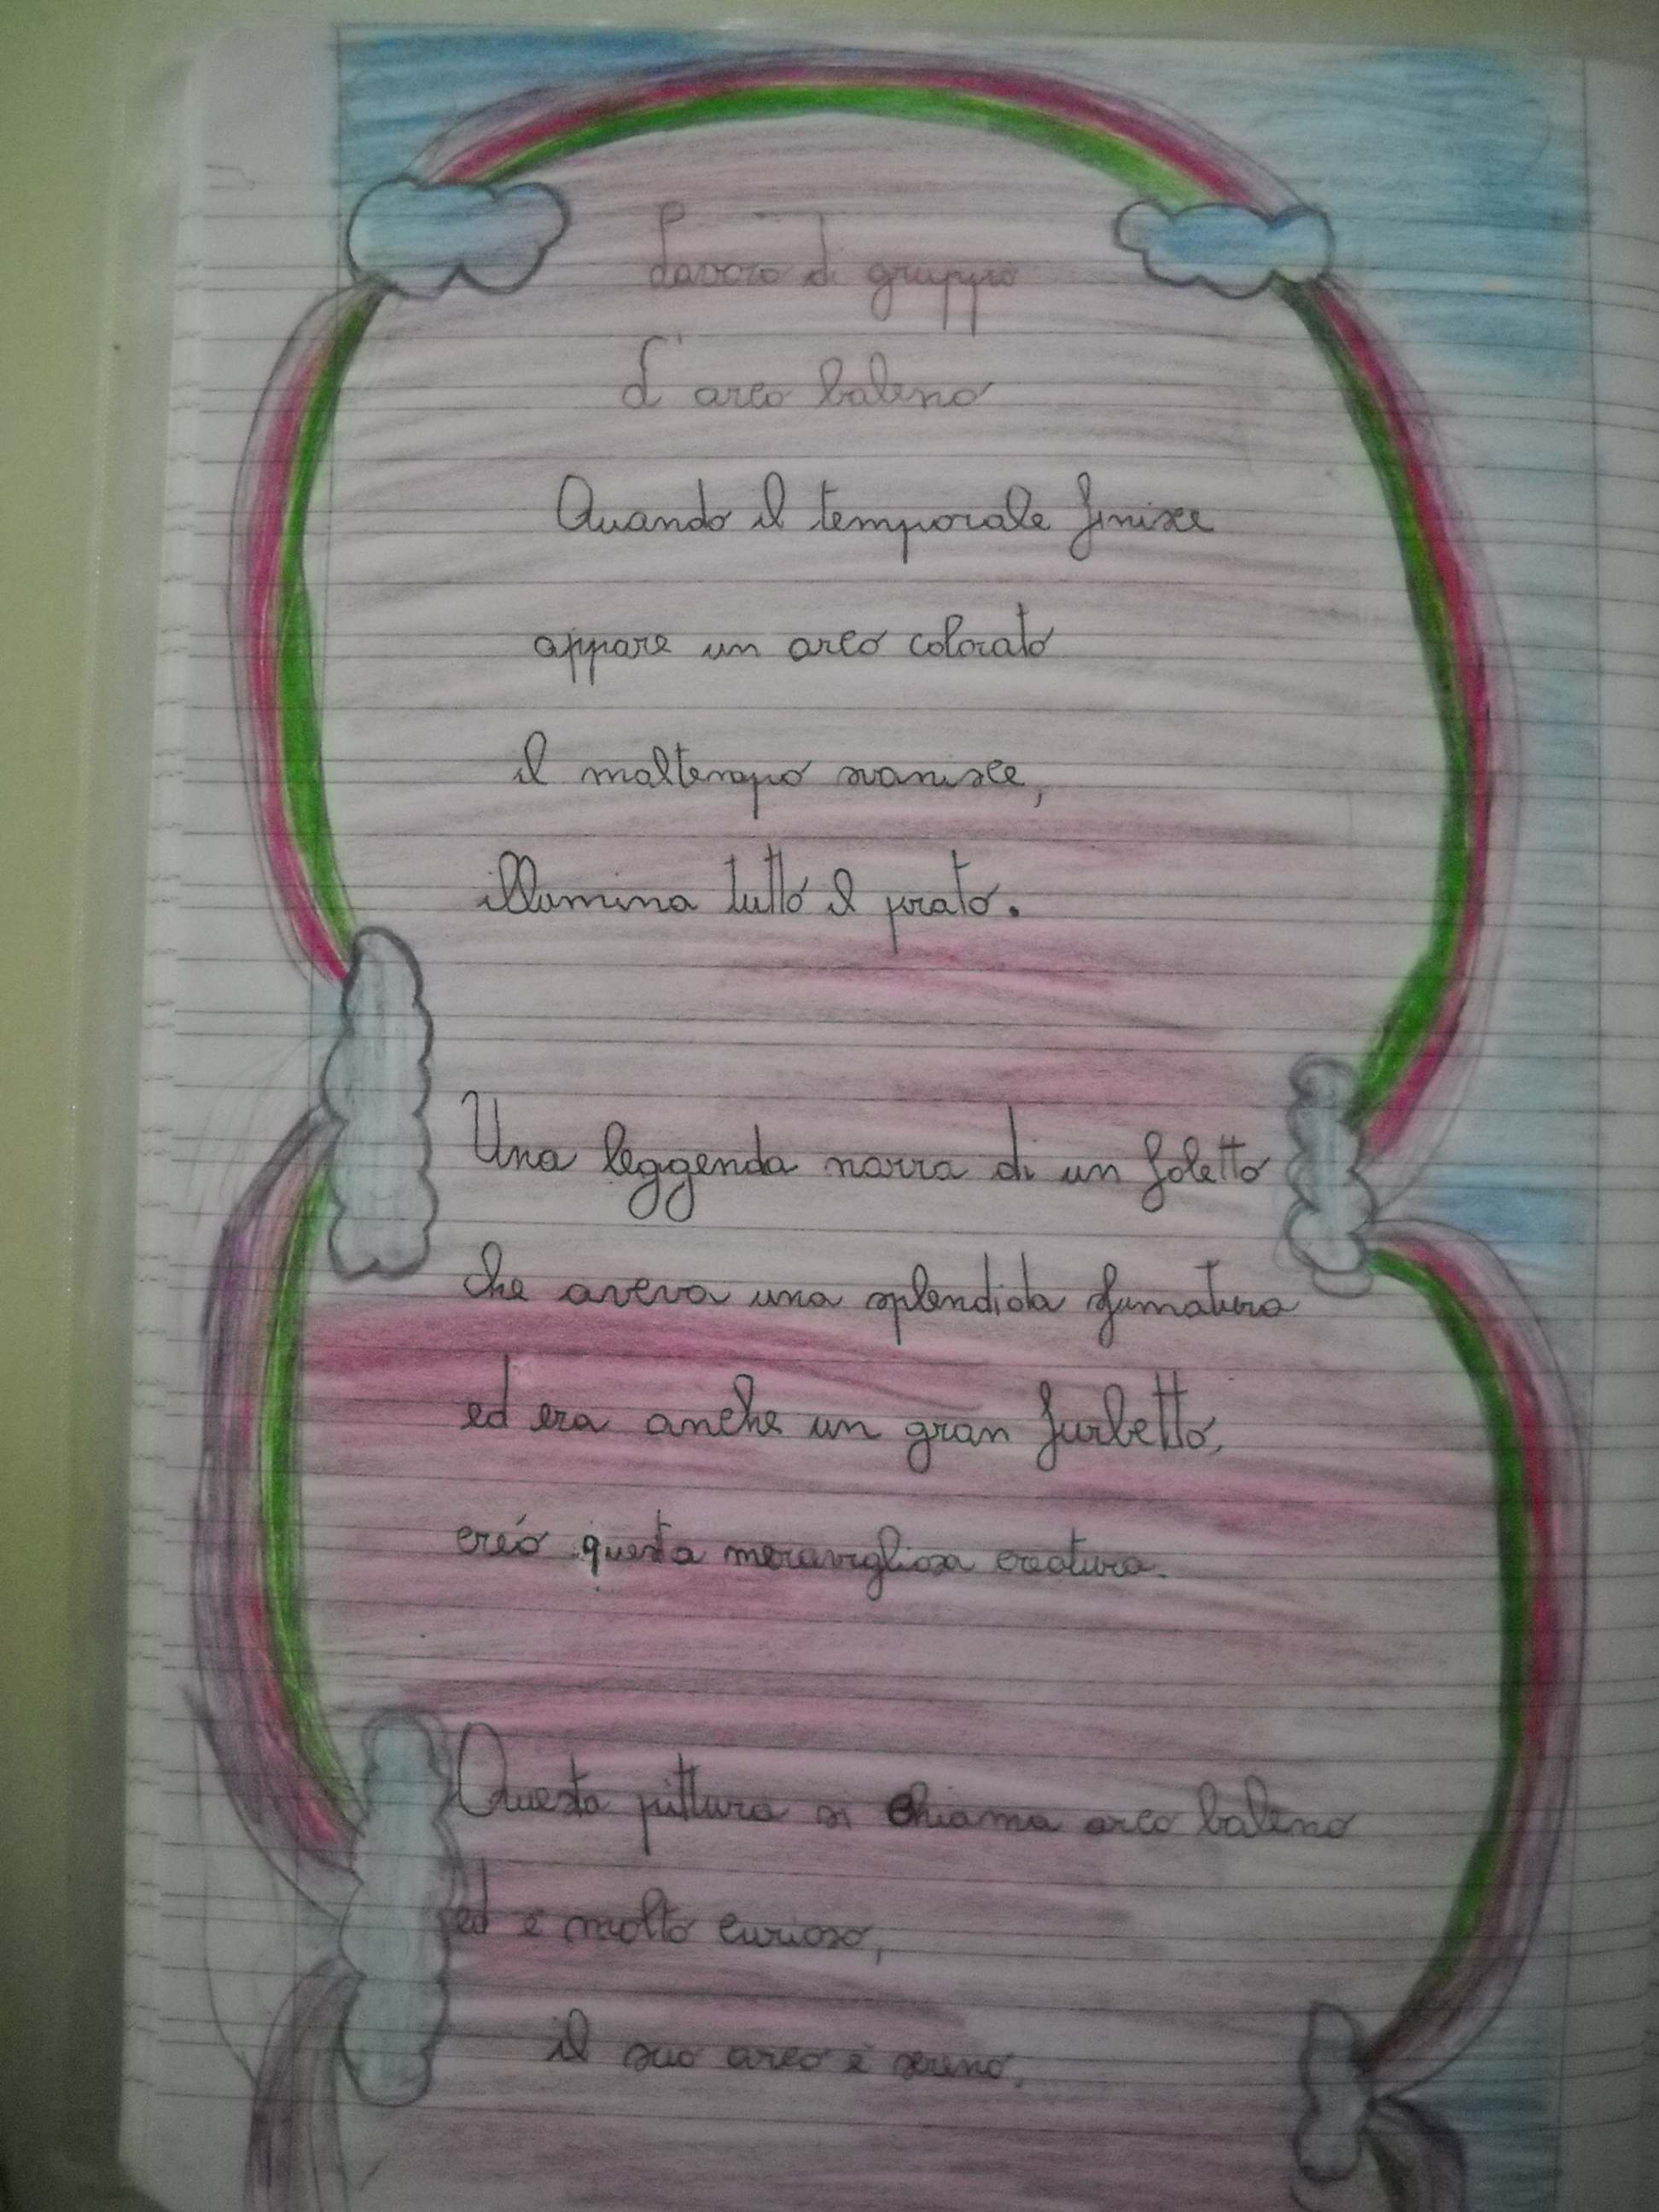 Lavoro di gruppo
L'arco baleno
Quando il temporale finisce
appare un arco colorato
il maltempo svanisce,
illumina tutto il prato.
Una leggenda narra di un foletto
che aveva una splendida sfumatura
ed era anche un gran furbetto,
creó questa meravigliosa creatura.
Questa pittura si chiama arco baleno
ed è molto curioso,
il suo arco è sereno,